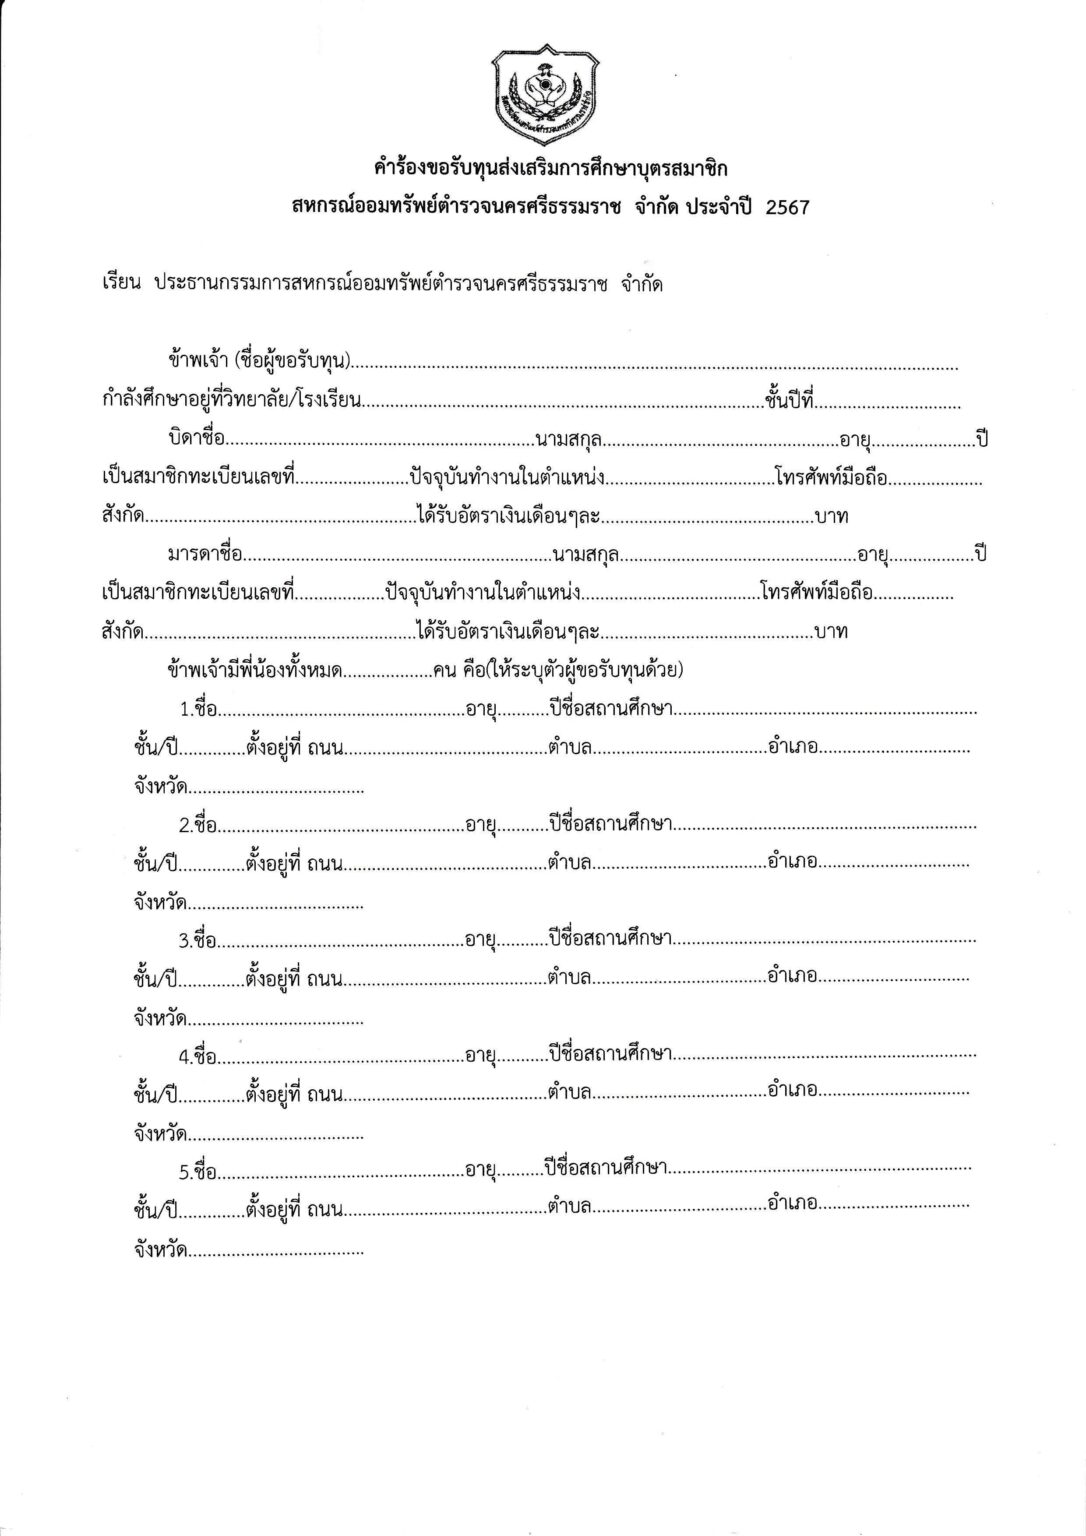 คำร้องขอรับทุนส่งเสริมการศึกษาบุตรสมาชิก
สหกรณ์ออมทรัพย์ตำรวจนครศรีธรรมราช จำกัด ประจำปี 2567
เรียน ประธานกรรมการสหกรณ์ออมทรัพย์ตำรวจนครศรีธรรมราช จำกัด
ข้าพเจ้า (ชื่อผู้ขอรับทุน)..........................................................
กำลังศึกษาอยู่ที่วิทยาลัย/โรงเรียน..............................ชั้นปีที่....................
บิดาชื่อ..............................นามสกุล..............................อายุ....................ปี
เป็นสมาชิกทะเบียนเลขที่....................ปัจจุบันทำงานในตำแหน่ง....................โทรศัพท์มือถือ....................
สังกัด..............................ได้รับอัตราเงินเดือนๆละ..............................บาท
มารดาชื่อ..............................นามสกุล..............................อายุ....................ปี
เป็นสมาชิกทะเบียนเลขที่..................ปัจจุบันทำงานในตำแหน่ง....................โทรศัพท์มือถือ.................
สังกัด..............................ได้รับอัตราเงินเดือนๆละ..............................บาท
ข้าพเจ้ามีพี่น้องทั้งหมด...................คน คือ(ให้ระบุตัวผู้ขอรับทุนด้วย)
1.ชื่อ..............................อายุ...........ปีชื่อสถานศึกษา..............................
ชั้น/ปี..............ตั้งอยู่ที่ ถนน..............................ตำบล..............................อำเภอ..............................
จังหวัด..............................
2.ชื่อ..............................อายุ...........ปีชื่อสถานศึกษา..............................
ชั้น/ปี..............ตั้งอยู่ที่ ถนน..............................ตำบล..............................อำเภอ..............................
จังหวัด..............................
3.ชื่อ..............................อายุ...........ปีชื่อสถานศึกษา..............................
ชั้น/ปี..............ตั้งอยู่ที่ ถนน..............................ตำบล..............................อำเภอ..............................
จังหวัด..............................
4.ชื่อ..............................อายุ...........ปีชื่อสถานศึกษา..............................
ชั้น/ปี..............ตั้งอยู่ที่ ถนน..............................ตำบล..............................อำเภอ..............................
จังหวัด..............................
5.ชื่อ..............................อายุ..........ปีชื่อสถานศึกษา..............................
ชั้น/ปี..............ตั้งอยู่ที่ ถนน..............................ตำบล..............................อำเภอ..............................
จังหวัด..............................